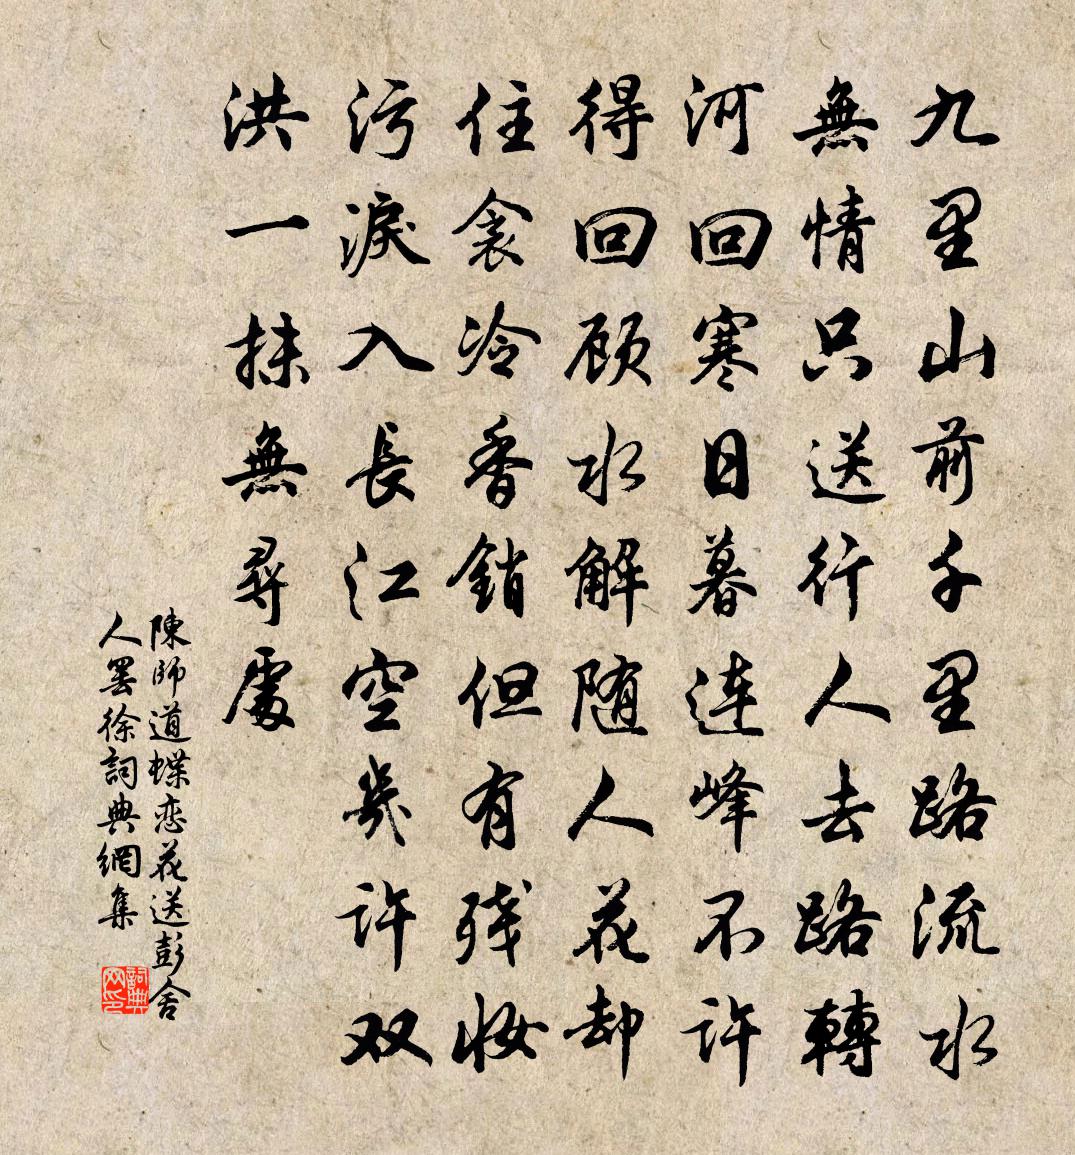 九里山前千里路流水
無情只送行人去路轉
河回寒日暮連峰不許
得回顾水解随人花却
住衾冷香銷但有残妆
污淚入長江空幾許双
洪一抹無尋處
陳師道蝶恋花送彭舍
人罢徐詞典網集
詞典网印